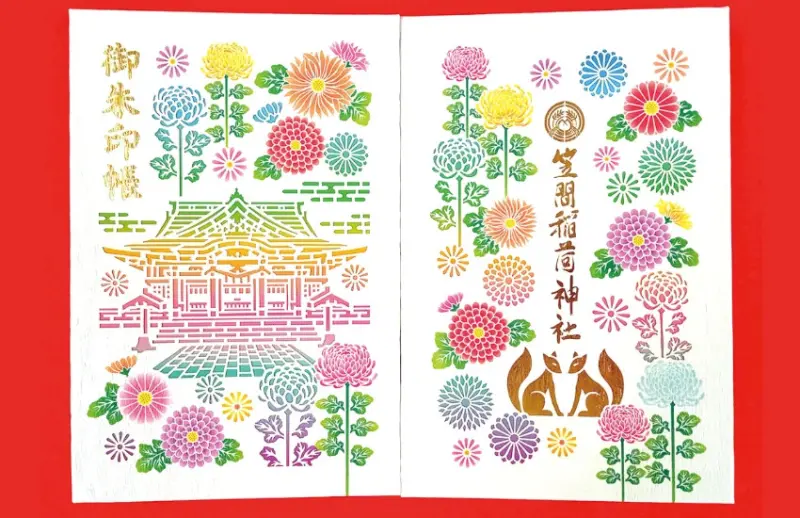 御朱印帳
笠間稲荷神社